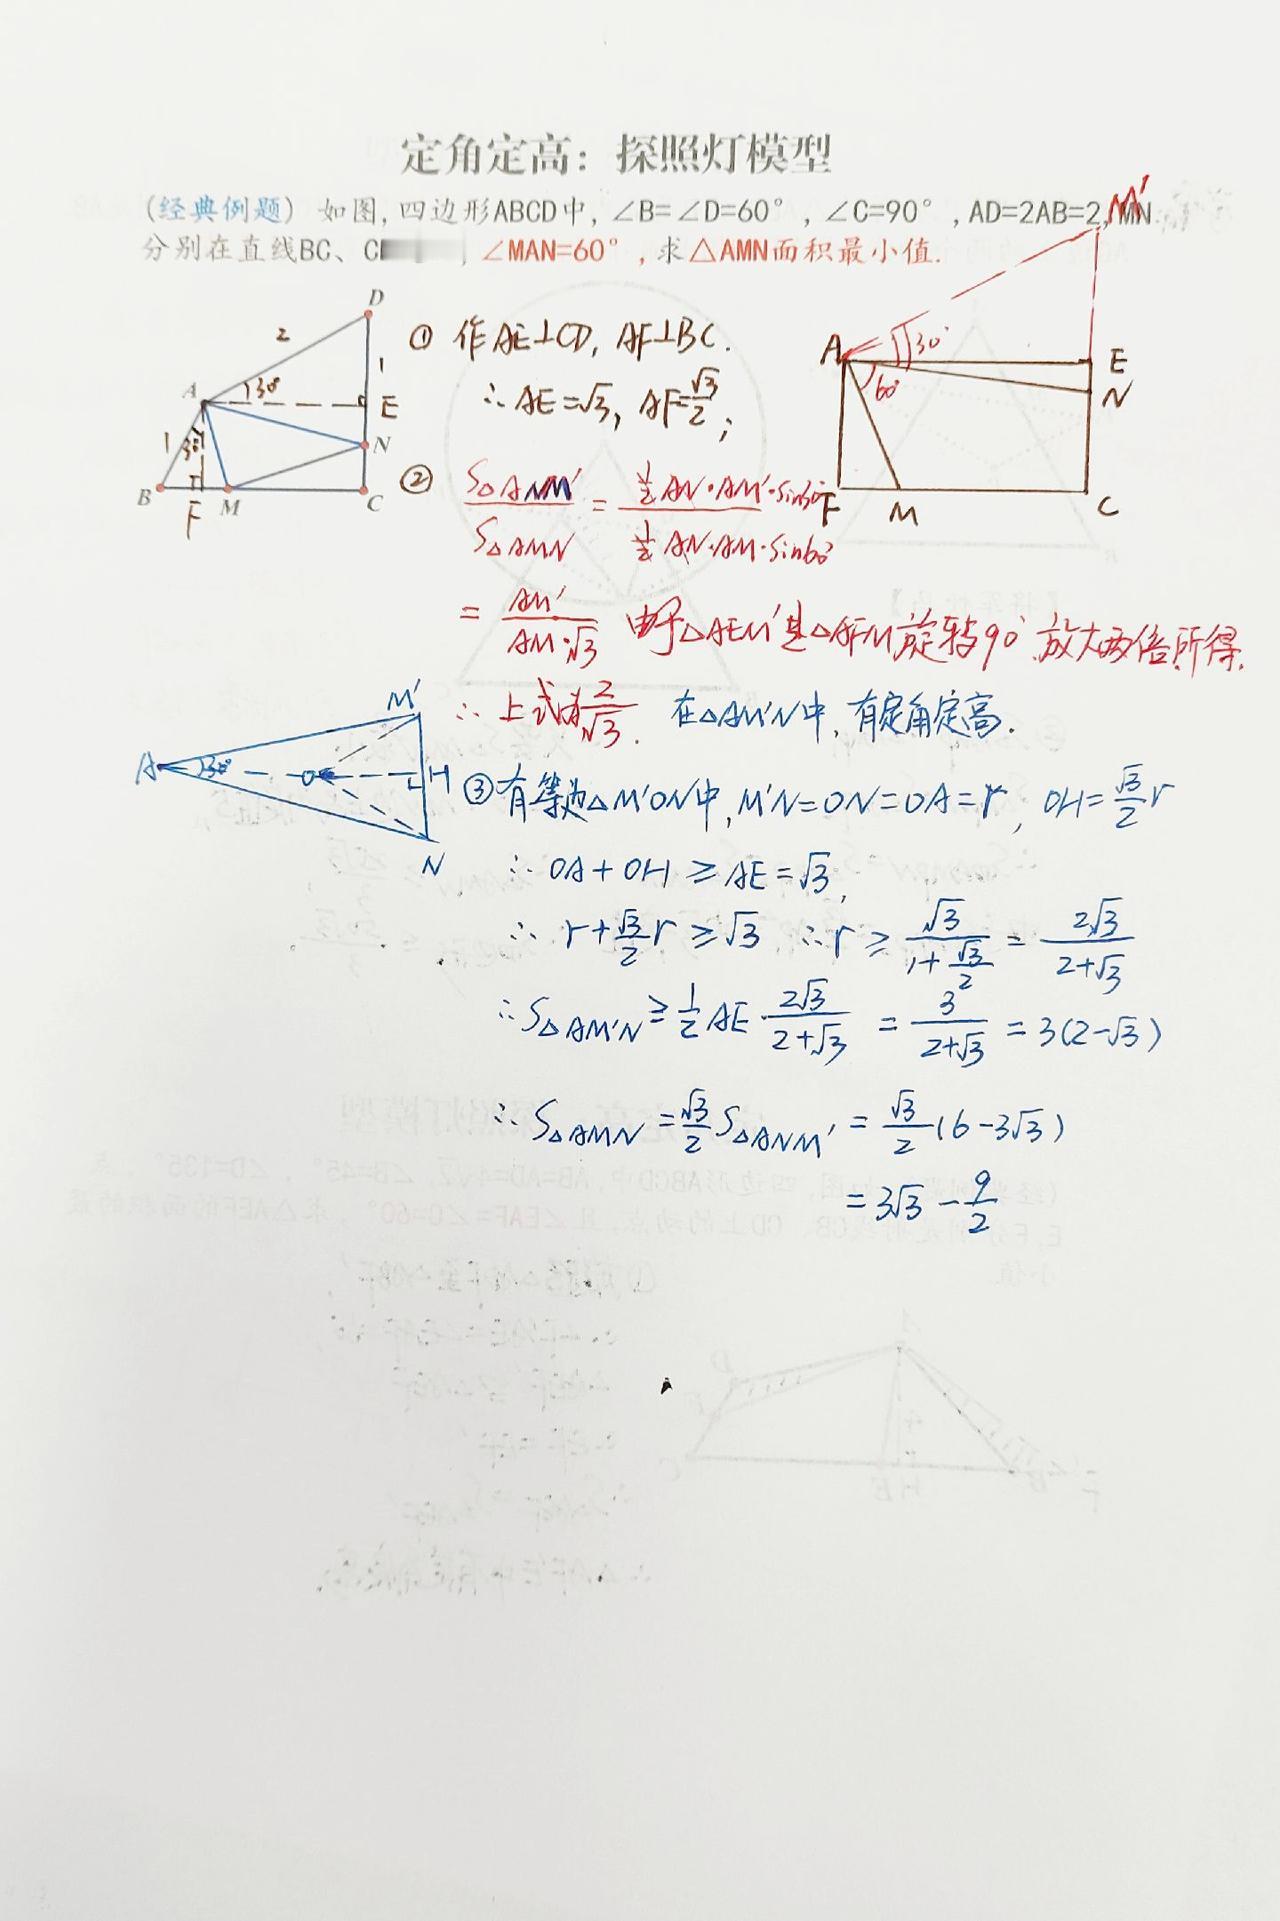 定角定高：探照灯模型
(经典例题) 如图, 四边形ABCD中, ∠B=∠D=60°, ∠C=90°, AD=2AB=2, MN
分别在直线BC、C ∠MAN=60°, 求△AMN面积最小值.
M'
D
2
1
A
30°
E
1
30°
N
B
F
M
C
① 作AE⊥CD, AF⊥BC.
∴ AE=√3, AF=√3/2;
A
30°
60°
E
N
F
M
C
② S△ANM'/S△AMN = (1/2 AN·AM'·sin30°)/(1/2 AN·AM·sin60°)
= AM'/(AM·√3) 由于△AEM'是△AFM旋转90°放大两倍所得.
∴ 上式为2/√3. 在△AM'N中, 有定角定高.
M'
A
30°
O
H
N
③ 有等边△M'ON中, M'N=ON=OA=r, OH=√3/2 r
∴ OA+OH ≥ AE=√3,
∴ r+√3/2 r ≥ √3 ∴ r ≥ √3/(1+√3/2) = 2√3/(2+√3)
∴ S△AM'N ≥ 1/2 AE·2√3/(2+√3) = 3/(2+√3) = 3(2-√3)
∴ S△AMN = √3/2 S△ANM' = √3/2 (6-3√3)
= 3√3 - 9/2